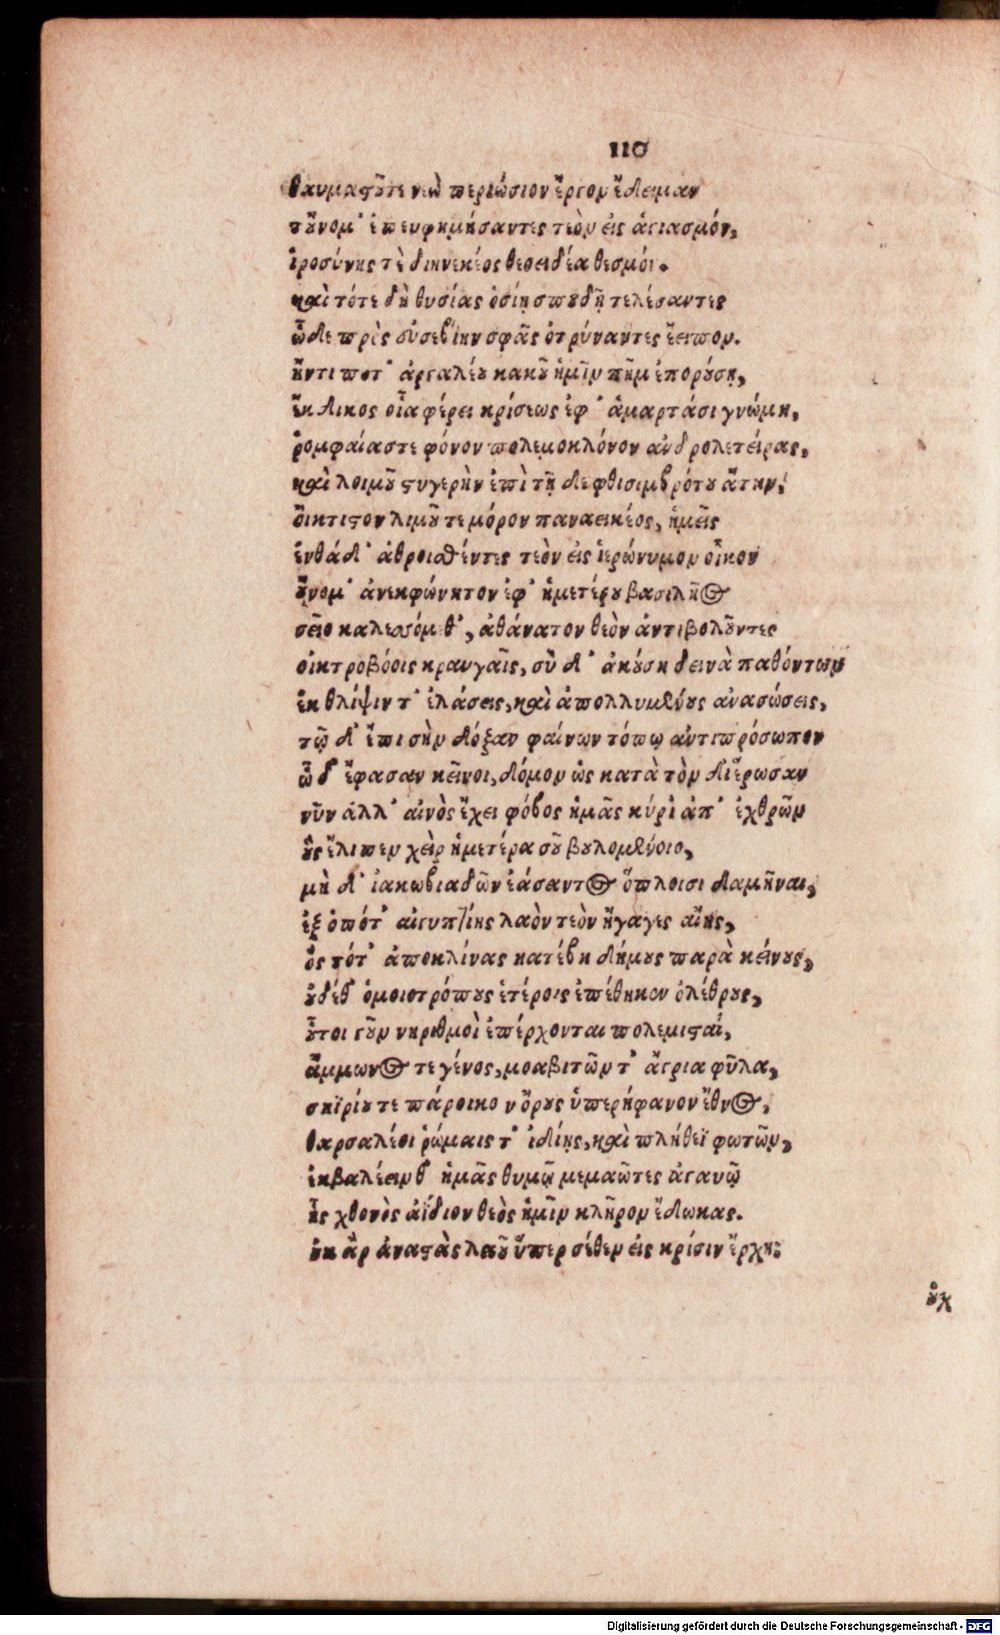 110
θαυμαςοῦτε νεὼ περιώσιον ἔργον ἔδειμαν
τοὔνομ᾽ ἐπευφημήσαντες τεὸν εἰς ἁγιασμόν,
ἱροσύνης τὲ διηνεκέος θεοειδέα θεσμόν.
καὶ τότε δὴ θυσίας ὁσίῃ σπουδῇ τελέσαντες
ὧδε πρὸς εὐσεβίην σφᾶς ὀτρύναντες ἔειπον.
ἤντι ποτ᾽ ἀργαλέου κακοῦ ἡμῖν πῆμ ἐπορούσῃ,
ἐκ δικος οἷα φέρει κρίσεως ἐφ᾽ ἁμαρτάσι γνώμη,
ῥομφαίαστε φόνον πολεμοκλόνον ἀνδρολετείρας,
καὶ λοιμοῦ ςυγερὴν ἐπὶ τῇ δε φθισιμβρότου ἄτην,
οἴκτιςον λιμοῦ τε μόρον παναεικέος, ἡμεῖς
ἐνθάδ᾽ ἀθροισθέντες τεὸν εἰς ἱερώνυμον οἶκον
οὔνομ᾽ ἀνεκφώνητον ἐφ᾽ ἡμετέρου βασιλῆος
σεῖο καλεσσόμθ᾽, ἀθάνατον θεὸν ἀντιβολοῦντες
οἰκτροβόοις κραυγαῖς, σὺ δ᾽ ἀκούσῃ δεινὰ παθόντων
ἐκ θλίψιν τ᾽ ἐλάσεις, καὶ ἀπολλυμένους ἀνασώσεις,
τῷ δ᾽ ἔπι σὴν δόξαν φαίνων τόπῳ ἀντιπρόσωπον
ὧδ᾽ ἔφασαν κεῖνοι, δόμον ὡς κατὰ τὸν διέρωσαν
νῦν ἀλλ᾽ αἰνὸς ἔχει φόβος ἡμᾶς κύρὶ ἀπ᾽ ἐχθρῶν
οὓς ἔλιπεν χεὶρ ἡμετέρα σοῦ βουλομένοιο,
μὴ δ᾽ ἰακωβιαδῶν ἐάσαντος ὅπλοισι δαμῆναι,
ἐξ ὁπότ᾽ αἰγυπτίης λαὸν τεὸν ἤγαγες αἴης,
ὃς τότ᾽ ἀποκλίνας κατέβη δήμους παρὰ κείνους,
οὐδέθ᾽ ὁμοιοτρόπους ἑτέροις ἐπέθηκεν ὀλέθρους,
οὗτοι γοῦν νηριθμοὶ ἐπέρχονται πολεμιςαὶ,
ἄμμωνος τε γένος, μοαβιτῶν τ᾽ ἄγρια φῦλα,
σηϊρίου τε πάροικον ὄρους ὑπερήφανον ἔθνος,
θαρσαλέοι ῥώμαις τ᾽ ἰδίῃς, καὶ πλήθεϊ φωτῶν,
ἐκβαλέειν θ᾽ ἡμᾶς θυμῷ μεμαῶτες ἀγαυῷ
ἧς χθονὸς ἀΐδιον θεὸς ἡμῖν κλῆρον ἔδωκας.
οὐκ ἂρ ἀναςὰς λαοῦ ὕπερ σέθεν εἰς κρίσιν ἔρχῃ;
οὐχ
Digitalisierung gefördert durch die Deutsche Forschungsgemeinschaft - DFG